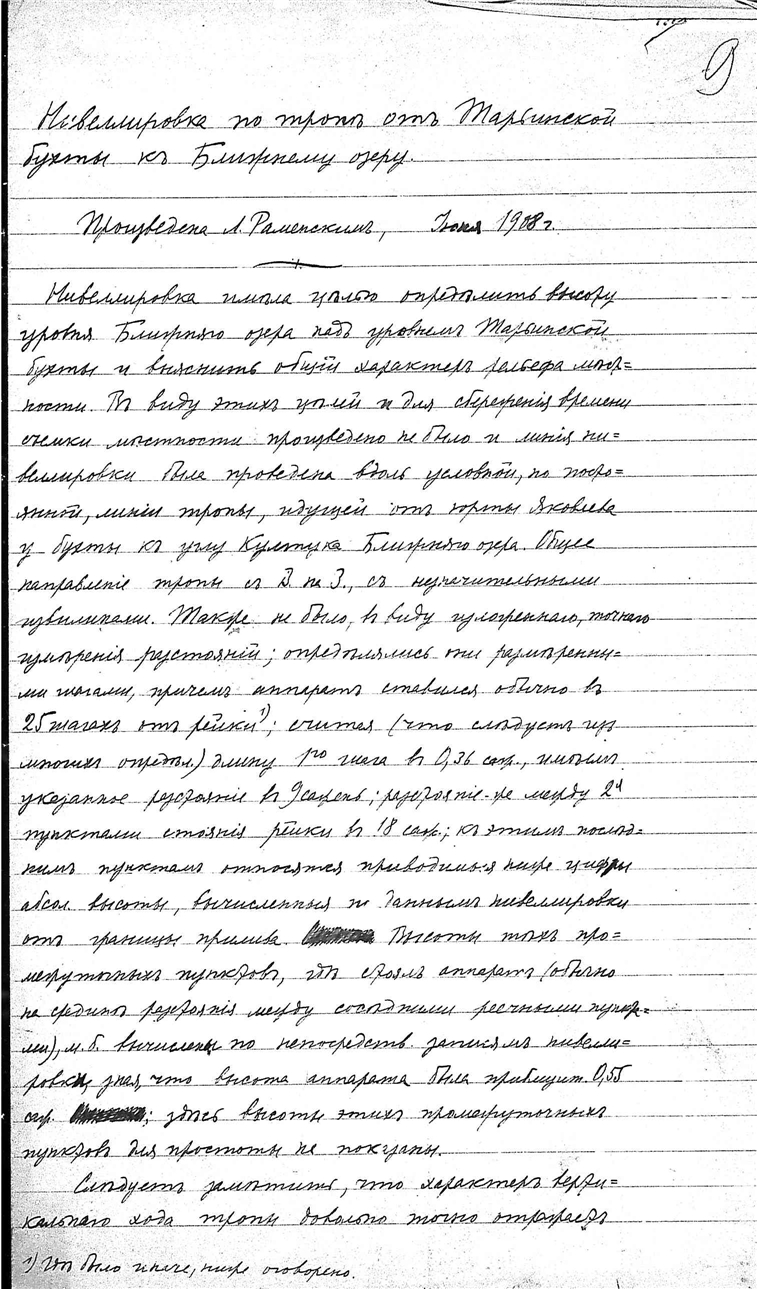 9
Нивеллировка по тропѣ отъ Тарьинской
бухты къ Ближнему озеру.
Произведена Л. Раменскимъ, Іюня 1908 г.
Нивеллировка имѣла цѣлью опредѣлить высоту
уровня Ближняго озера надъ уровнемъ Тарьинской
бухты и выяснить общій характеръ рельефа мѣст=
ности. Въ виду этихъ цѣлей и для сбереженія времени
съемки мѣстности произведено не было и линія ни=
веллировки была проведена вдоль условной, но посто=
янной, линіи тропы, идущей отъ юрты Яковлева
у бухты къ углу Култука Ближняго озера. Общее
направленіе тропы съ В. на З., съ незначительными
извилинами. Также не было, въ виду изложеннаго, точнаго
измѣренія разстояній; опредѣлялись они размѣренны=
ми шагами, причемъ аппаратъ ставился обычно въ
25 шагахъ отъ рейки¹⁾; считая (что слѣдуетъ изъ
многихъ опредѣл.) длину 1го шага в 0,36 саж., имѣемъ
указанное разстояніе в 9 сажень; разстояніе-же между 2я
пунктами стоянія рейки в 18 саж.; къ этимъ послѣд=
нимъ пунктамъ относятся приводимыя ниже цифры
абсол. высоты, вычисленныя по даннымъ нивеллировки
отъ границы прилива. Высоты тѣхъ про=
межуточныхъ пунктовъ, гдѣ стоялъ аппаратъ (обычно
на срединѣ разстоянія между сосѣдними реечными пункта=
ми), м. б. вычислены по непосредств. записямъ нивелли=
ровки, зная, что высота аппарата была приблизит. 0,55
саж. ; здѣсь высоты этихъ промежуточныхъ
пунктовъ для простоты не показаны.
Слѣдуетъ замѣтить, что характеръ верти=
кальнаго хода тропы довольно точно отражаетъ
¹⁾ Гдѣ было иначе, ниже оговорено.